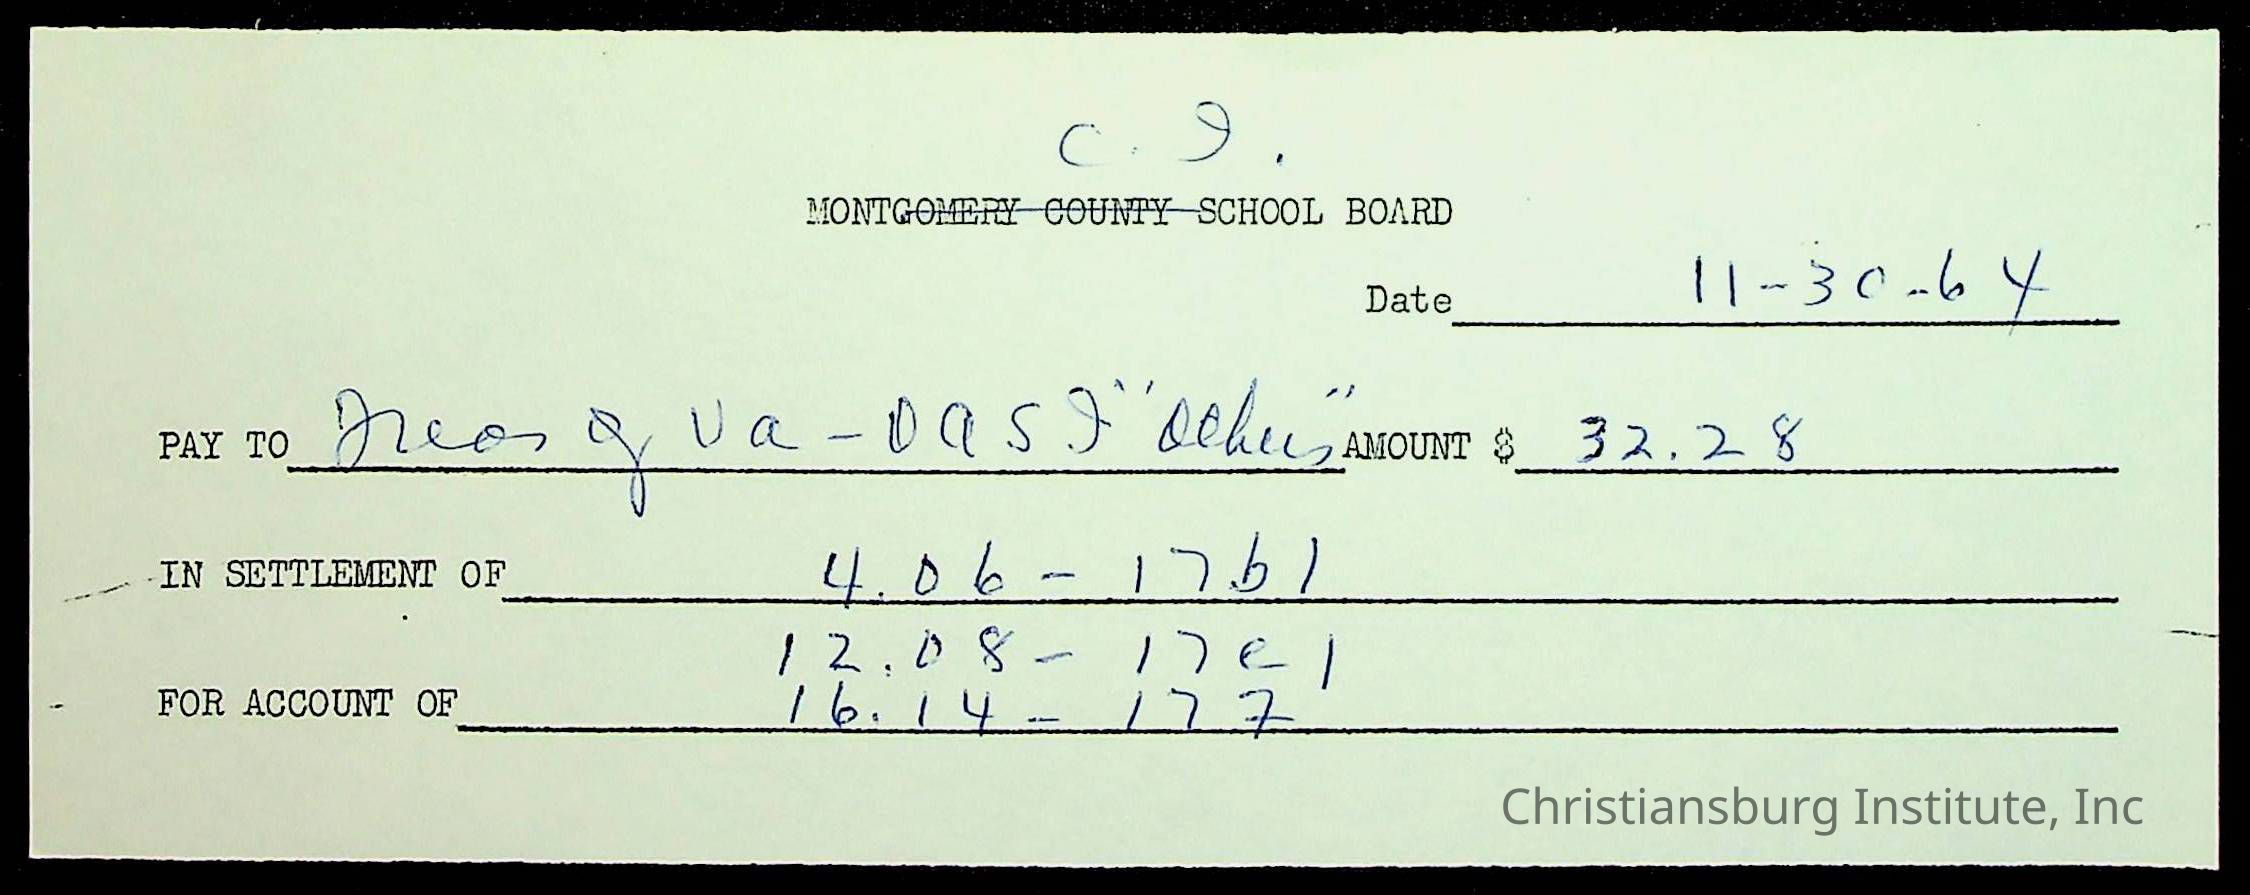 C. I.
MONTGOMERY COUNTY SCHOOL BOARD
Date 11-30-64
PAY TO Treas of Va - OASI "Other" AMOUNT $ 32.28
IN SETTLEMENT OF 4.06 - 17b1
12.08 - 17c1
FOR ACCOUNT OF 16.14 - 177
Christiansburg Institute, Inc